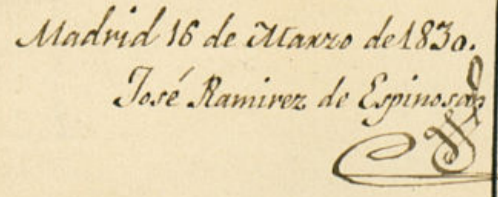 Madrid 16 de Marzo de 1830.
José Ramirez de Espinosa